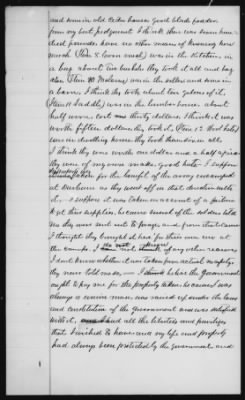 and some in old Cedar houses good blade fodder
from my best judgement I think there was some hun-
dred pounds have no other means of knowing how
much (Item 8 Corn meal) was in the kitchen in
a bag about two bushels they took it all and bag
also (Item 10 Molasses) was in the cellar and some in
a barn. I think they took about ten galons of it.
(Item 11 Saddle) was in the lumber house about
half worn, cost me thirty dollars. I think it was
worth fifteen dollars they took it. (Item 12 Wool hats)
was in dwelling house they took hands on all
I think they was worth one dollar and a half apiece
they was of my own make, good hats. I suppose
for the benefit of the army encamped
at Durham as they went off in that direction with
it. I suppose it was taken on account of a failure
to get their supplies because some of the soldiers told
me they was sent out to forage, and from that cause
I thought they brought it here for their own use at
the camp. I do not know of any other reason
I don't know whether it was taken from actual necessity
they never told me so. I think believe the Government
ought to pay me for the property taken because I was
always a union man, was raised up under the laws
and constitution of the government and was satisfied
with it, had all the liberties and privileges
that I wished to have and my life and property
had always been protected by the government and